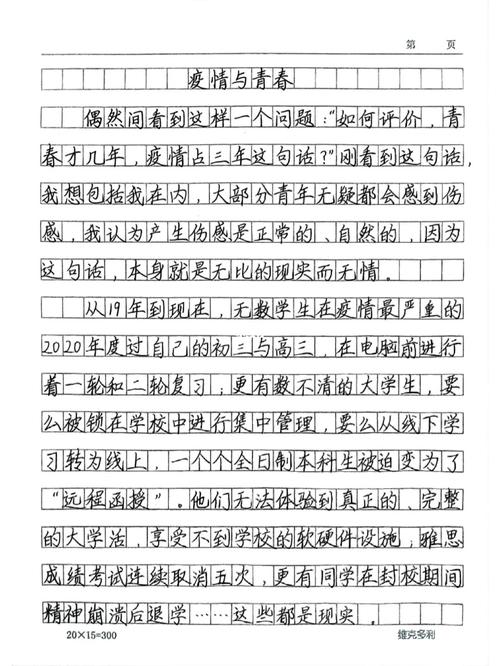 第 页
疫情与青春
偶然间看到这样一个问题："如何评价，青
春才几年，疫情占三年这句话？"刚看到这句话，
我想包括我在内，大部分青年无疑都会感到伤
感，我认为产生伤感是正常的、自然的，因为
这句话，本身就是无比的现实而无情。
从19年到现在，无数学生在疫情最严重的
2020年度过自己的初三与高三，在电脑前进行
着一轮和二轮复习；更有数不清的大学生，要
么被锁在学校中进行集中管理，要么从线下学
习转为线上，一个个全日制本科生被迫变为了
"远程函授"。他们无法体验到真正的、完整
的大学活，享受不到学校的软硬件设施；雅思
成绩考试连续取消五次，更有同学在封校期间
精神崩溃后退学……这些都是现实。
20×15=300 维克多利